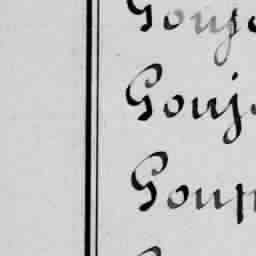 Gouj
Gouj
Goup